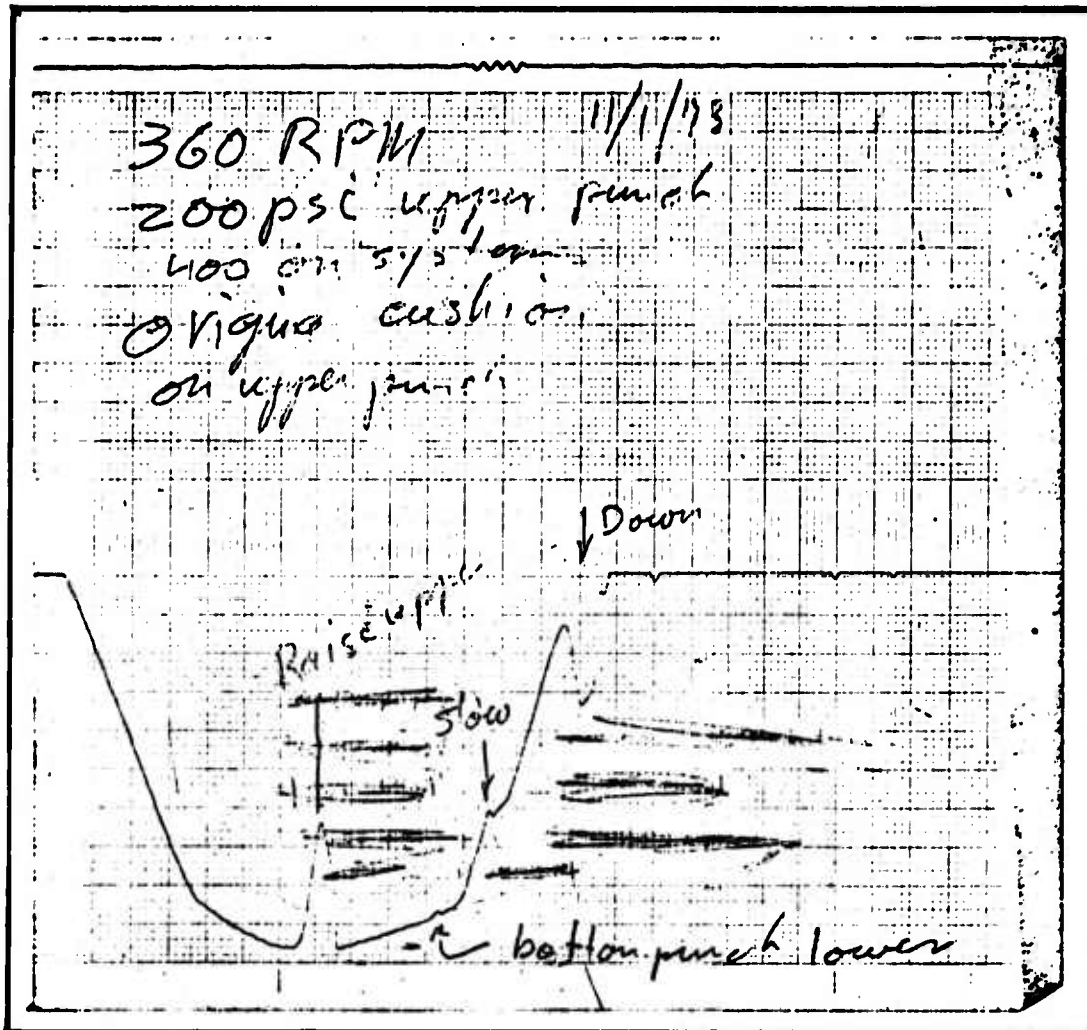 11/1/73
360 RPM
200 psi upper punch
400 on system
Origina cushion
on upper punch
Down
Raise up
Slow
4
bottom punch lower